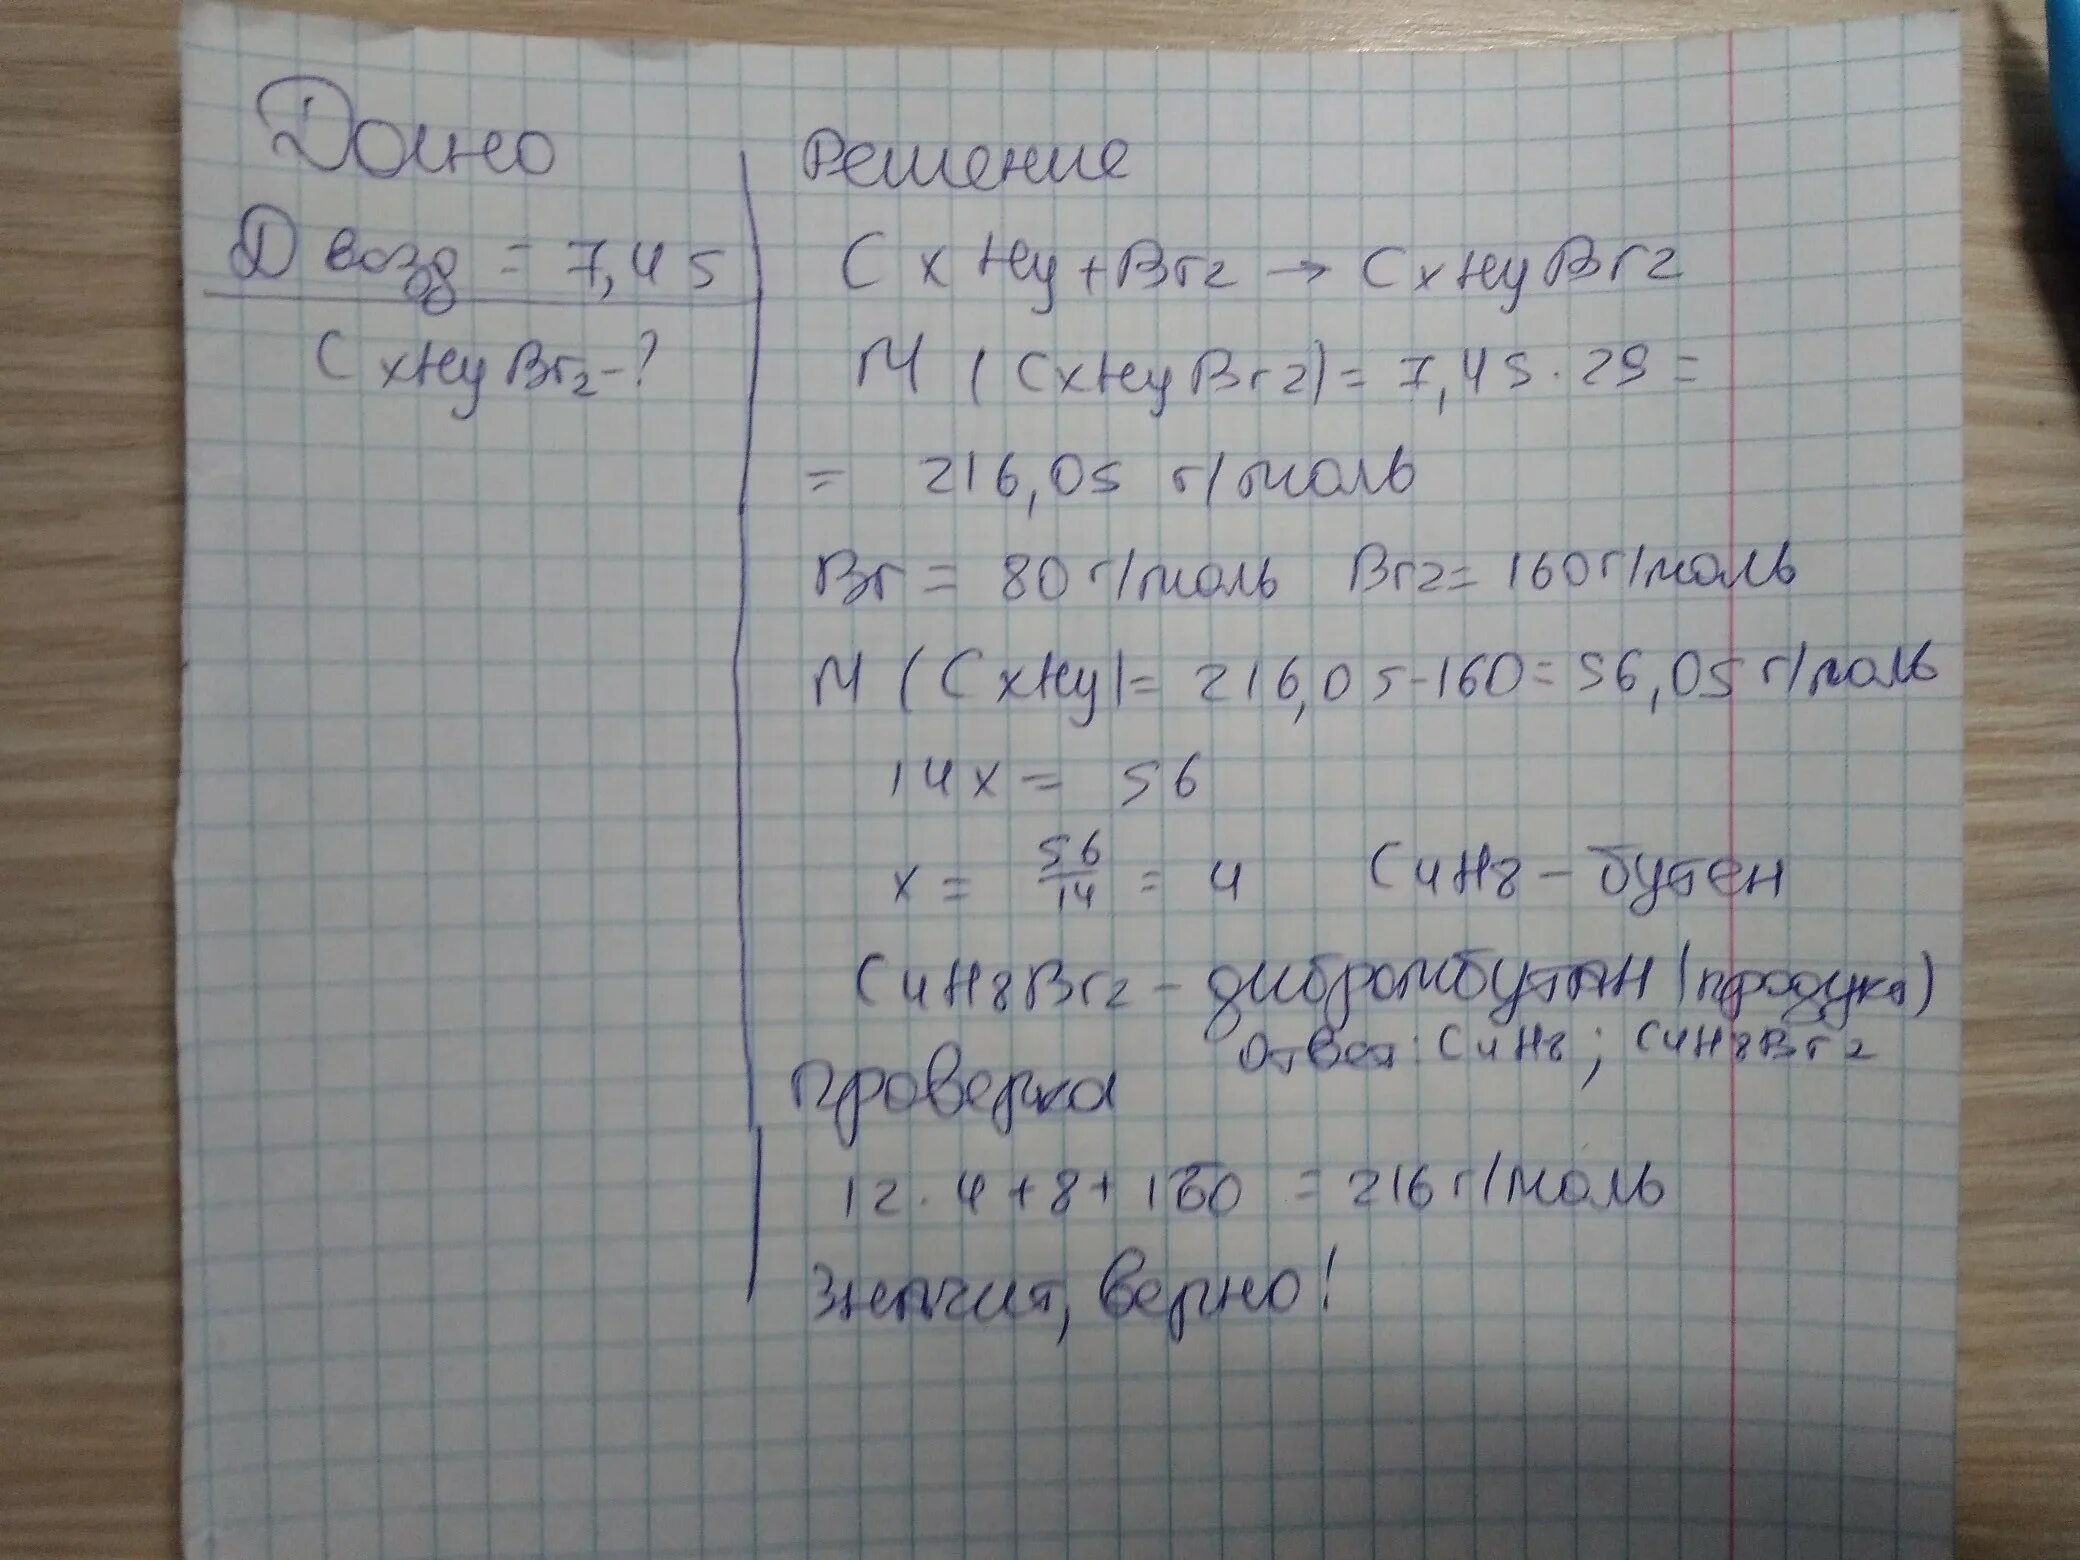 Дано
D возд = 7,45
CxHyBr2-?
Решение
CxHy+Br2→CxHyBr2
M (CxHyBr2)= 7,45·29=
= 216,05 г/моль
Br= 80 г/моль Br2= 160 г/моль
M (CxHy)= 216,05-160=56,05 г/моль
14x= 56
x= 56/14 = 4 C4H8-бутен
C4H8Br2-дибромбутАН (продукт)
Ответ: C4H8; C4H8Br2
Проверка
12·4+8+160 = 216 г/моль
Значит, верно!